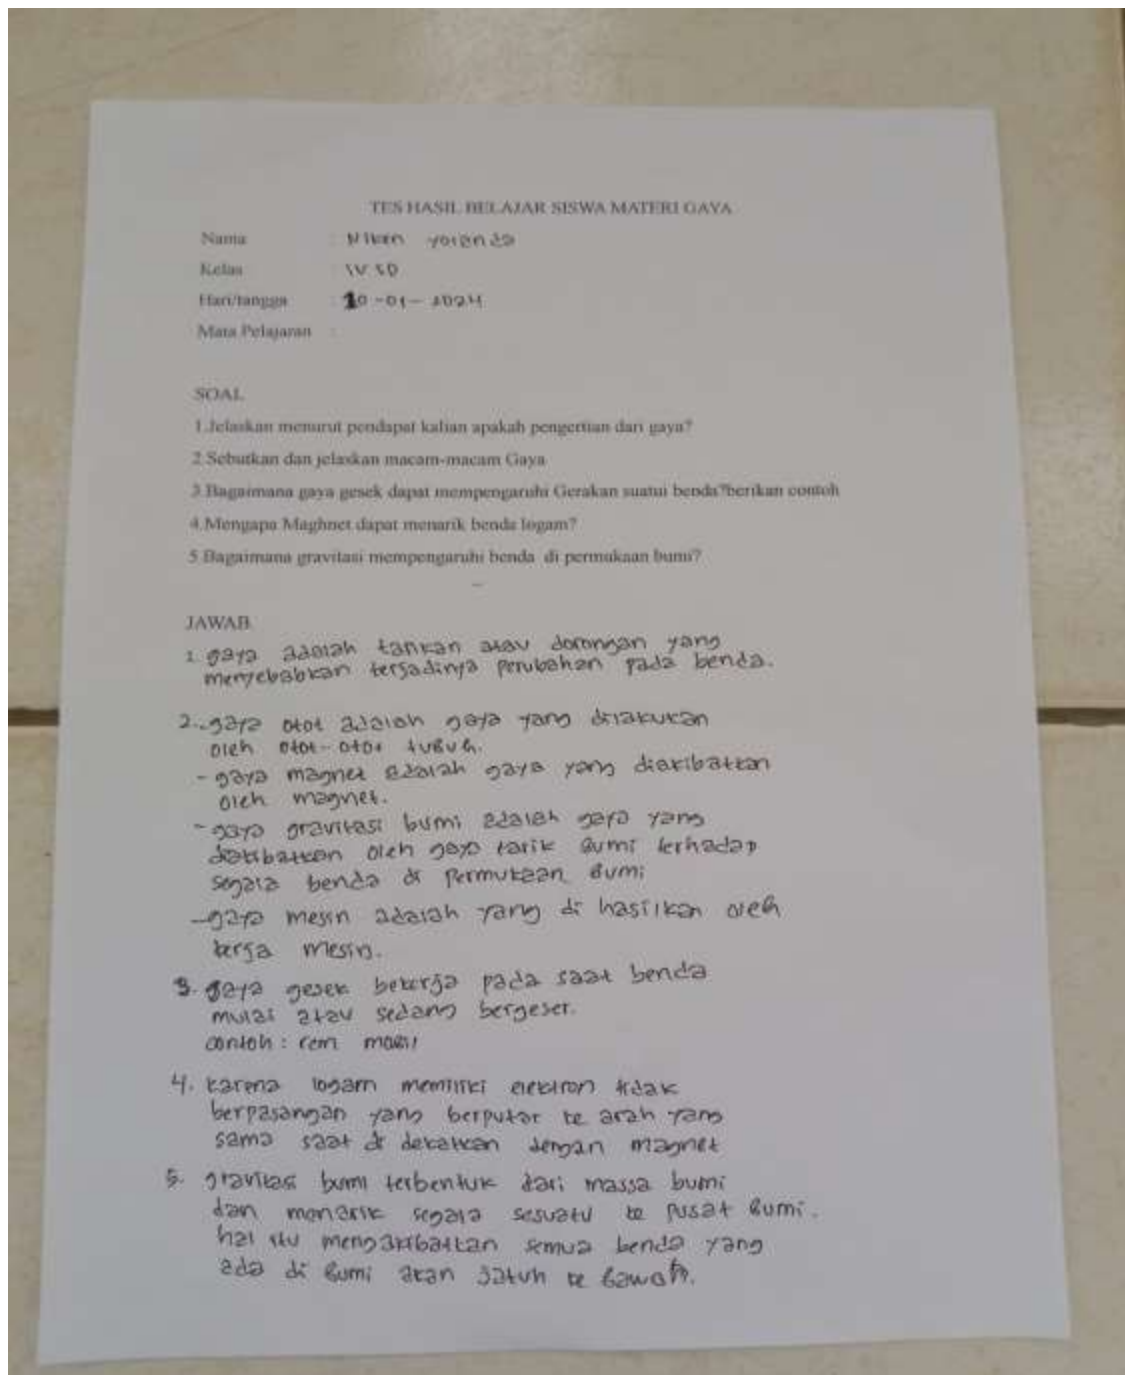 TES HASIL BELAJAR SISWA MATERI GAYA
Nama : Niken yolanda
Kelas : IV SD
Hari/tangga : 10-01-2024
Mata Pelajaran :
SOAL
1.Jelaskan menurut pendapat kalian apakah pengertian dari gaya?
2.Sebutkan dan jelaskan macam-macam Gaya
3.Bagaimana gaya gesek dapat mempengaruhi Gerakan suatui benda?berikan contoh
4.Mengapa Maghnet dapat menarik benda logam?
5.Bagaimana gravitasi mempengaruhi benda di permukaan bumi?
JAWAB
1. gaya adalah tarikan atau dorongan yang
menyebabkan terjadinya perubahan pada benda.
2.-gaya otot adalah gaya yang dilakukan
oleh otot-otot tubuh.
- gaya magnet adalah gaya yang diakibatkan
oleh magnet.
- gaya gravitasi bumi adalah gaya yang
diakibatkan oleh gaya tarik bumi terhadap
segala benda di Permukaan Bumi
-gaya mesin adalah yang di hasilkan oleh
kerja mesin.
3. gaya gesek bekerja pada saat benda
mulai atau sedang bergeser.
contoh : rem mobil
4. karena logam memiliki elektron tidak
berpasangan yang berputar ke arah yang
sama saat di dekatkan dengan magnet
5. gravitasi bumi terbentuk dari massa bumi
dan menarik segala sesuatu ke pusat Bumi.
hal itu mengakibatkan semua benda yang
ada di Bumi akan jatuh ke bawah.